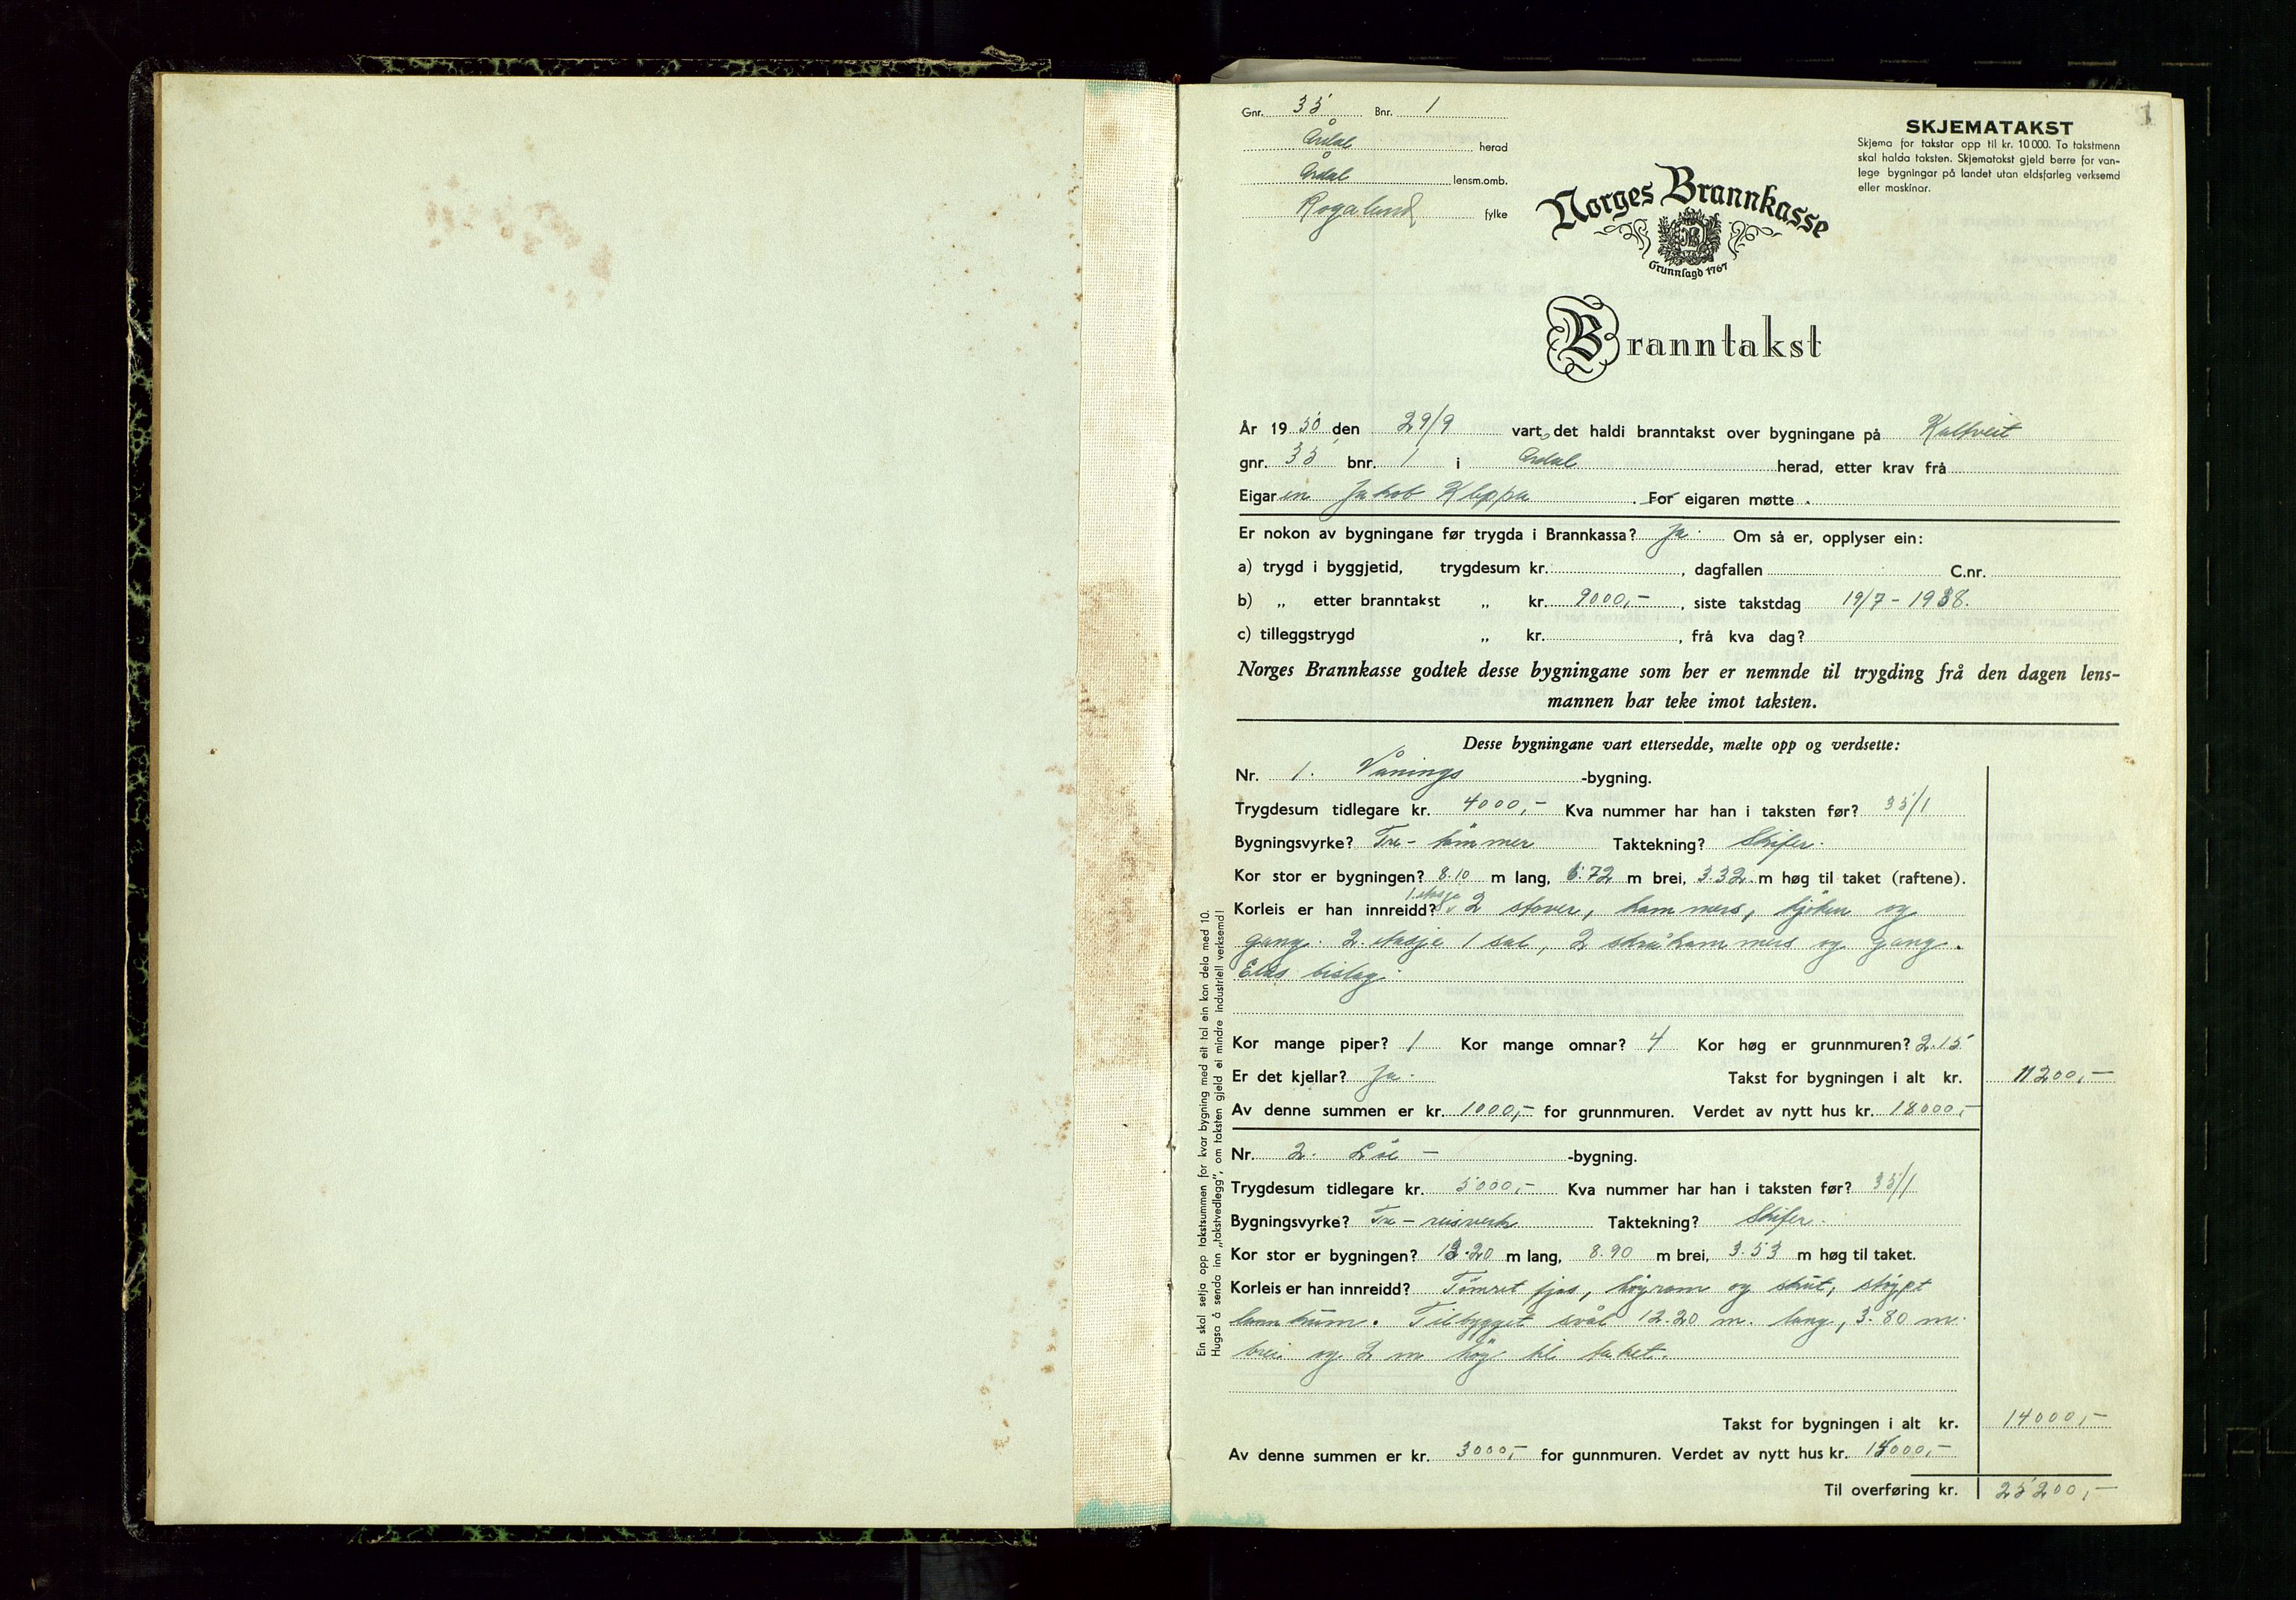 1
Gnr. 35 Bnr. 1
Årdal herad
Årdal lensm.omb.
Rogaland fylke
SKJEMATAKST
Skjema for takstar opp til kr. 10 000. To takstmenn
skal halda taksten. Skjematakst gjeld berre for van-
lege bygningar på landet utan eldsfarleg verksemd
eller maskinar.
Norges Brannkasse
Grunnlagd 1767
Branntakst
År 19 50 den 29/9 vart det haldi branntakst over bygningane på Kaltveit
gnr. 35 bnr. 1 i Årdal herad, etter krav frå
Eigaren Jakob Kleppa. For eigaren møtte .
Er nokon av bygningane før trygda i Brannkassa? Ja. Om så er, opplyser ein:
a) trygd i byggjetid, trygdesum kr. , dagfallen C.nr.
b) „ etter branntakst „ kr. 9000,- , siste takstdag 19/7 - 1938.
c) tilleggstrygd „ kr. , frå kva dag?
Norges Brannkasse godtek desse bygningane som her er nemnde til trygding frå den dagen lens-
mannen har teke imot taksten.
Desse bygningane vart ettersedde, mælte opp og verdsette:
Nr. 1. Vånings -bygning.
Trygdesum tidlegare kr. 4000,- Kva nummer har han i taksten før? 35/1
Bygningsvyrke? Tre - tømmer Taktekning? Skifer.
Kor stor er bygningen? 8.10 m lang, 6.72 m brei, 3.32 m høg til taket (raftene).
Korleis er han innreidd? 1. etasje 2 stover, kammers, kjøken og
gang. 2. etasje 1 sal, 2 skråkammers og gang.
Eldre bislag.
Kor mange piper? 1 Kor mange omnar? 4 Kor høg er grunnmuren? 2.15
Er det kjellar? Ja. Takst for bygningen i alt kr. 11200,-
Av denne summen er kr. 1000,- for grunnmuren. Verdet av nytt hus kr. 18000,-
Nr. 2. Løe - -bygning.
Trygdesum tidlegare kr. 5000,- Kva nummer har han i taksten før? 35/1
Bygningsvyrke? Tre - reisverk Taktekning? Skifer.
Kor stor er bygningen? 12.20 m lang, 8.90 m brei, 3.53 m høg til taket.
Korleis er han innreidd? Tømret fjøs, høyrom og skut, støypt
landkum. Tilbygget svål 12.20 m. lang, 3.80 m.
brei og 2 m høg til taket.
Takst for bygningen i alt kr. 14000,-
Av denne summen er kr. 3000,- for gunnmuren. Verdet av nytt hus kr. 15000,-
Til overføring kr. 25200,-
Ein skal setja opp takstsummen for kvar bygning med eit tal ein kan dela med 10.
Hugsa å senda inn „takstvedlegg", om taksten gjeld ei mindre industriell verksemd!